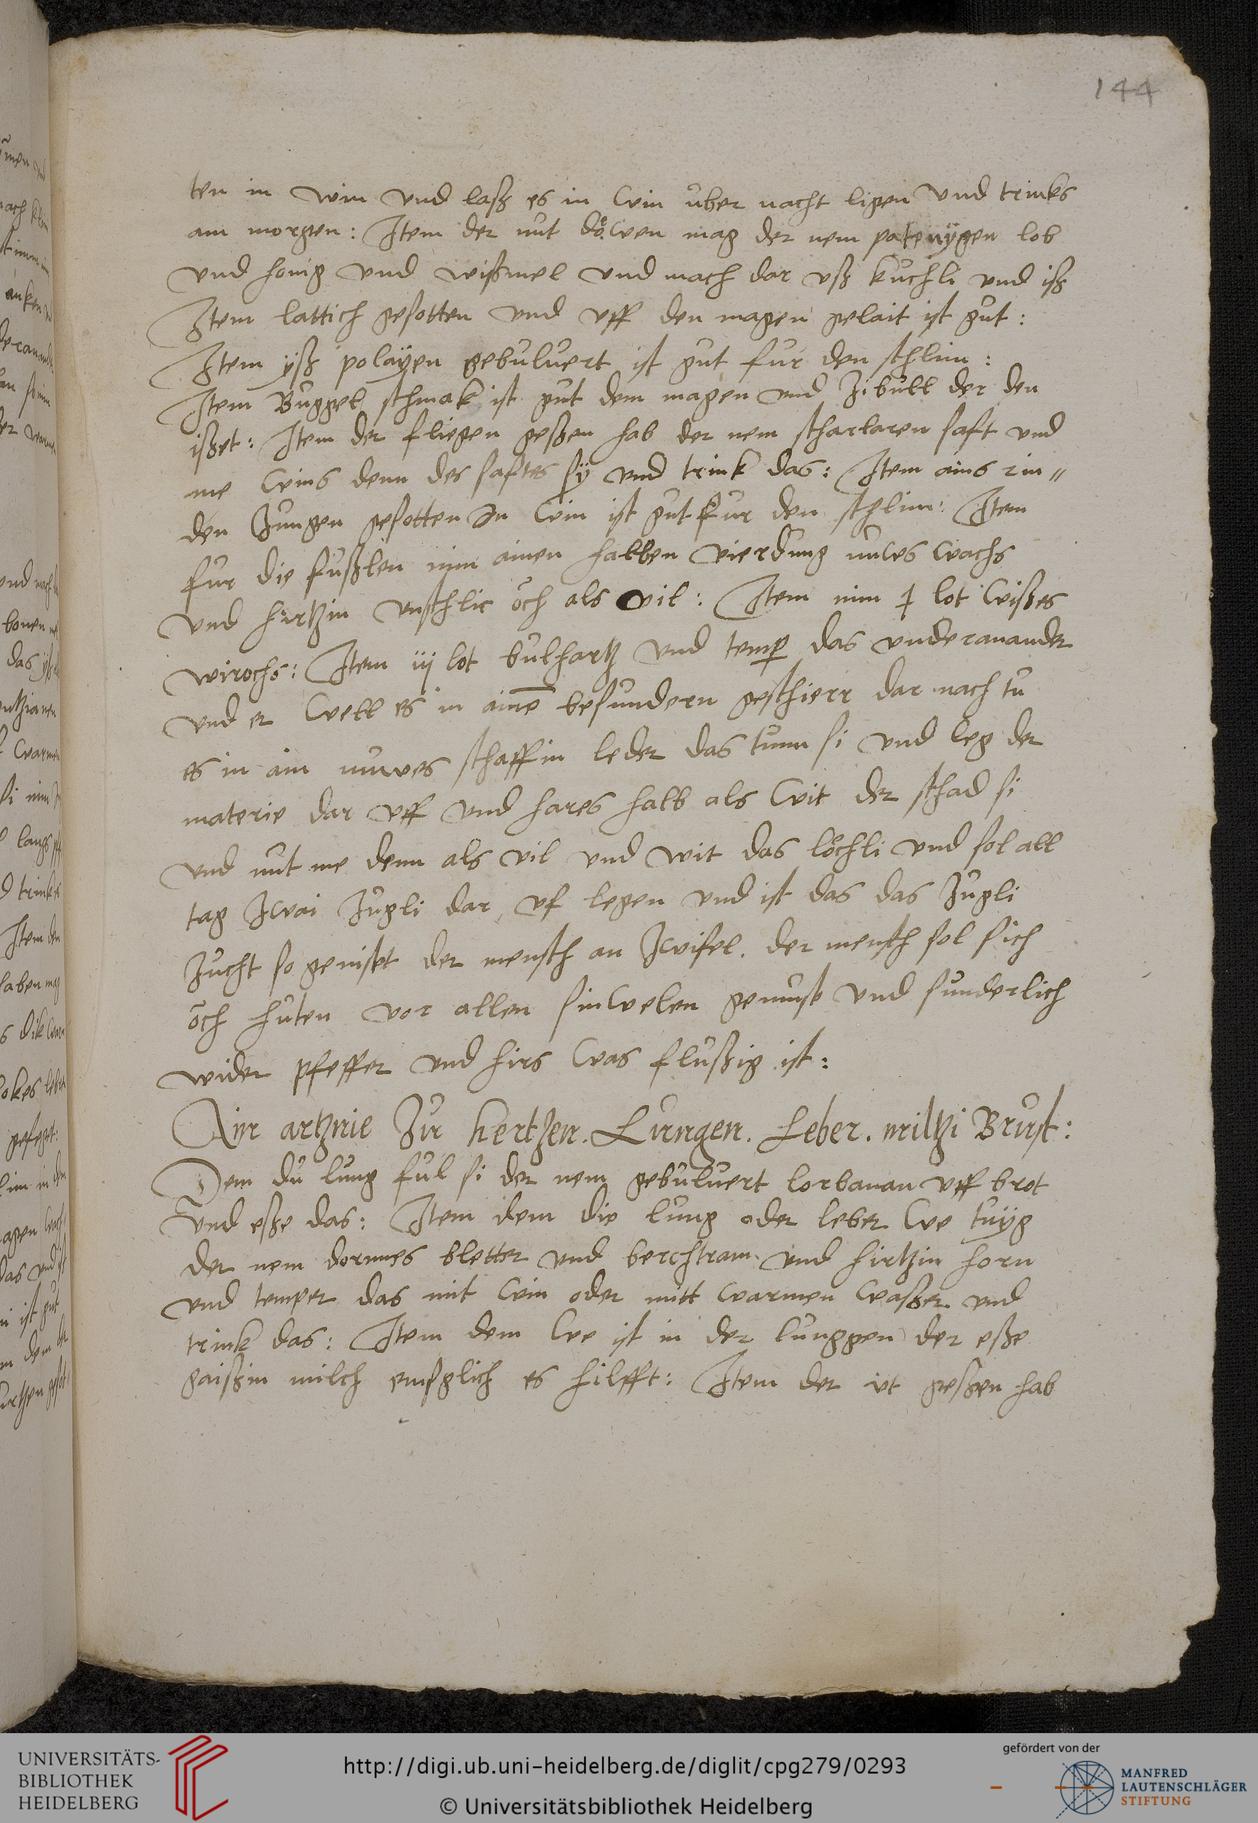 144
ten in win vnd laß es in win uber nacht ligen vnd trinks
am morgen: Item der nut döwen mag der nem patenÿgen lob
vnd honig vnd wißmel vnd mach dar vß kuchli vnd iß
Item lattich gesotten vnd vff den magen gelait ist gut:
Item yß polaÿen gebuluert ist gut fur den schlim:
Item Buggel schmak ist gut dem magen vnd zibull der den
ißet: Item der fliegen geßen hab der nem scharlaren saft vnd
me wins denn des saftes sÿ vnd trink das: Item ains rin„
den zungen gesotten in win ist gut fur den schlim: Item
fur die fußlen nim ainen halben vierdung nuws wachs
vnd hirtzin vnschlit öch als vil: Item nim lot wißes
wirochs: Item iij lot bulhartz vnd temper das vnderanander
vnd er well es in aine besundern geschierr dar nach tu
es in ain nuwes schaffin leder das tunn si vnd leg der
materie dar vff vnd hares halb als wit der schad si
vnd nut me denn als vil vnd wit das löchli vnd sol all
tag zwai zugli dar vf legen vnd ist das das zugli
zucht so genißet der mensch an zwifel. der mensch sol sich
öch huten vor allen sinwelen gemuß vnd sunderlich
wider pfeffer vnd hirs was flußig ist:
Ain artznie zu hertzen. Lungen. Leber. miltzi Brust:
Dem du lung ful si der nem gebuluert lorbanan vff brot
vnd eße das: Item dem die lung oder leber we tuÿg
der nem dornnes bletter vnd berchtram vnd hirtzin horn
vnd temper das mit win oder mitt warmen waßer vnd
trink das: Item dem we ist in der lunggen der eße
gaißin milch emsglich es hilfft: Item der it geßen hab
UNIVERSITÄTS-
BIBLIOTHEK
HEIDELBERG
http://digi.ub.uni-heidelberg.de/diglit/cpg279/0293
© Universitätsbibliothek Heidelberg
gefördert von der
MANFRED
LAUTENSCHLÄGER
STIFTUNG